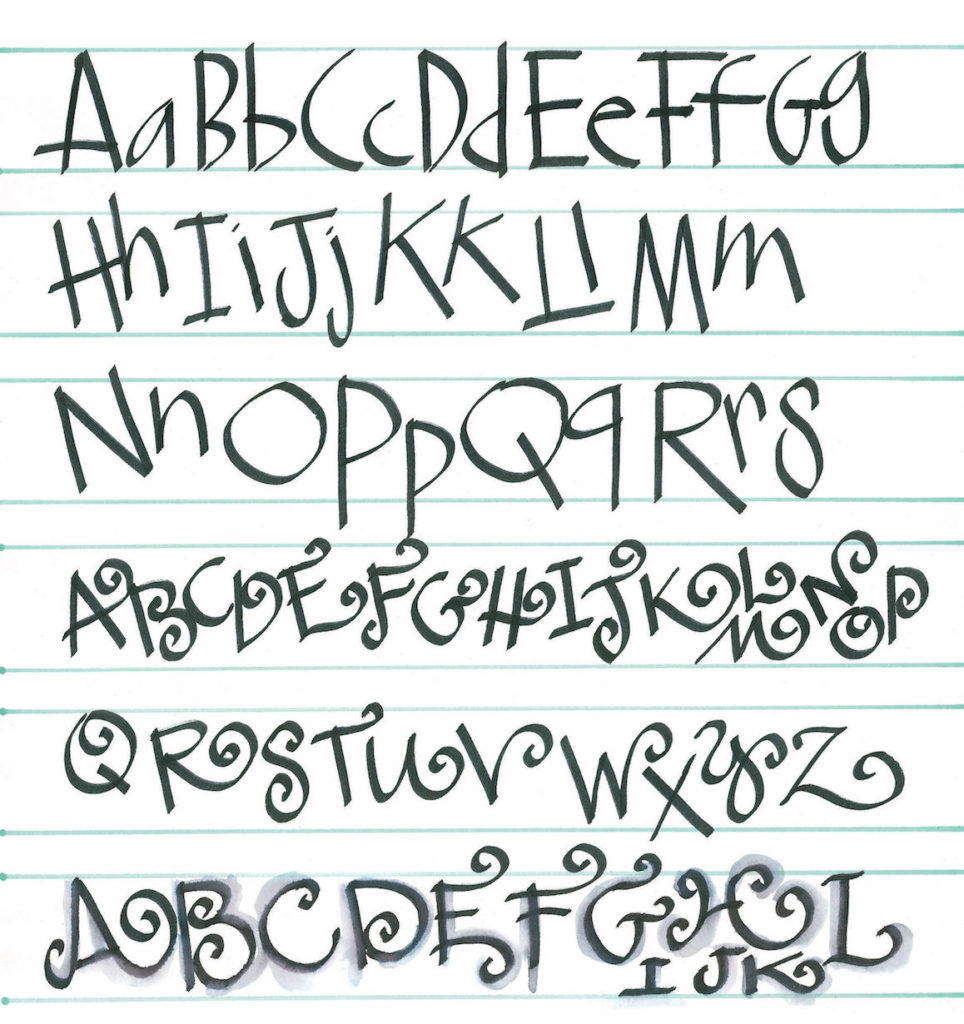 AaBbCcDdEeFfGg
HhIiJjKkLlMm
NnOPpQqRrS
ABCDEFGHIJKLMNOP
QRSTUVWXYZ
ABCDEFGHIJKL